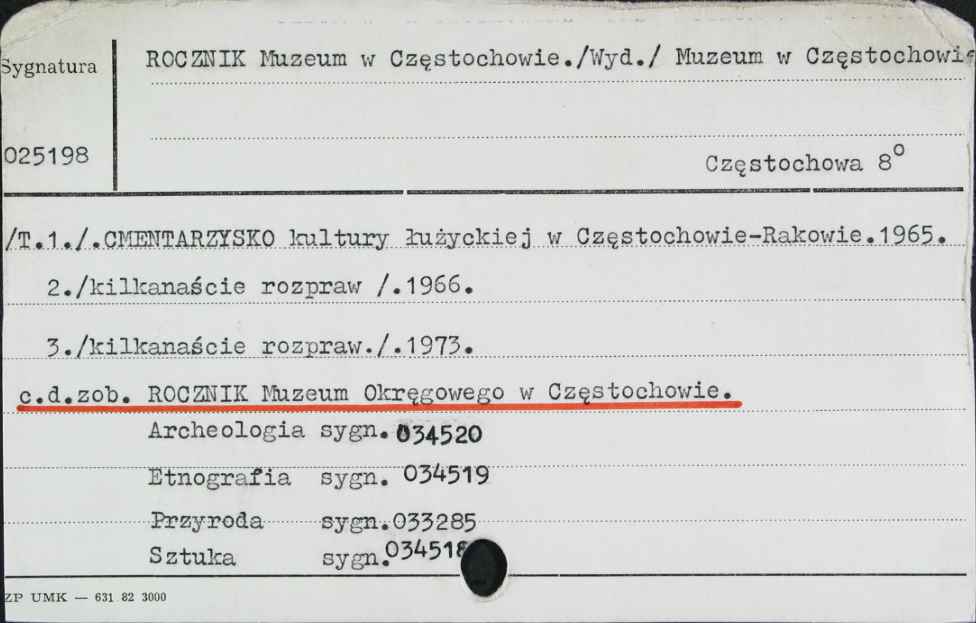 ROCZNIK Muzeum w Częstochowie./Wyd./ Muzeum w Częstochowie
Sygnatura
025198
Częstochowa 8°
/T.1./.CMENTARZYSKO kultury łużyckiej w Częstochowie-Rakowie.1965.
2./kilkanaście rozpraw /.1966.
3./kilkanaście rozpraw./.1973.
c.d.zob. ROCZNIK Muzeum Okręgowego w Częstochowie.
Archeologia sygn. 034520
Etnografia sygn. 034519
Przyroda sygn.033285
Sztuka sygn.034518
ZP UMK — 631 82 3000